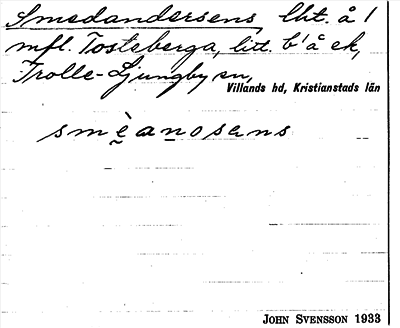 Smedandersens, lht. å 1
mfl. Tosteberga, litt. b¹ å ek,
Trolle-Ljungby sn,
Villands hd, Kristianstads län
smèanosens
John Svensson 1933